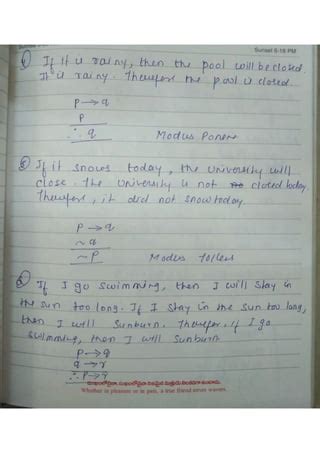 Sunset 6-16 PM
If it is rainy, then the pool will be closed.
It is rainy. Therefore the pool is closed.
P → q
P
∴ q Modus Ponens
If it snows today, the university will
close. The university is not closed today.
Therefore, it did not snow today
P → q
~q
~P Modus Tollens
If I go swimming, then I will stay in
the sun too long. If I stay in the sun too long,
then I will sunburn. Therefore, if I go
swimming, then I will sunburn
P → q
q → r
∴ P → r
Whether in pleasure or in pain, a true friend never waves.